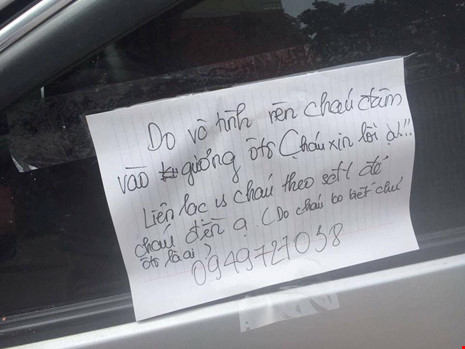 Do vô tình nên cháu đâm
vào gương ôtô Cháu xin lỗi ạ!!!
Liên lạc vs cháu theo số đt để
cháu đền ạ (Do cháu ko biết chủ
ôtô là ai)
0949727038